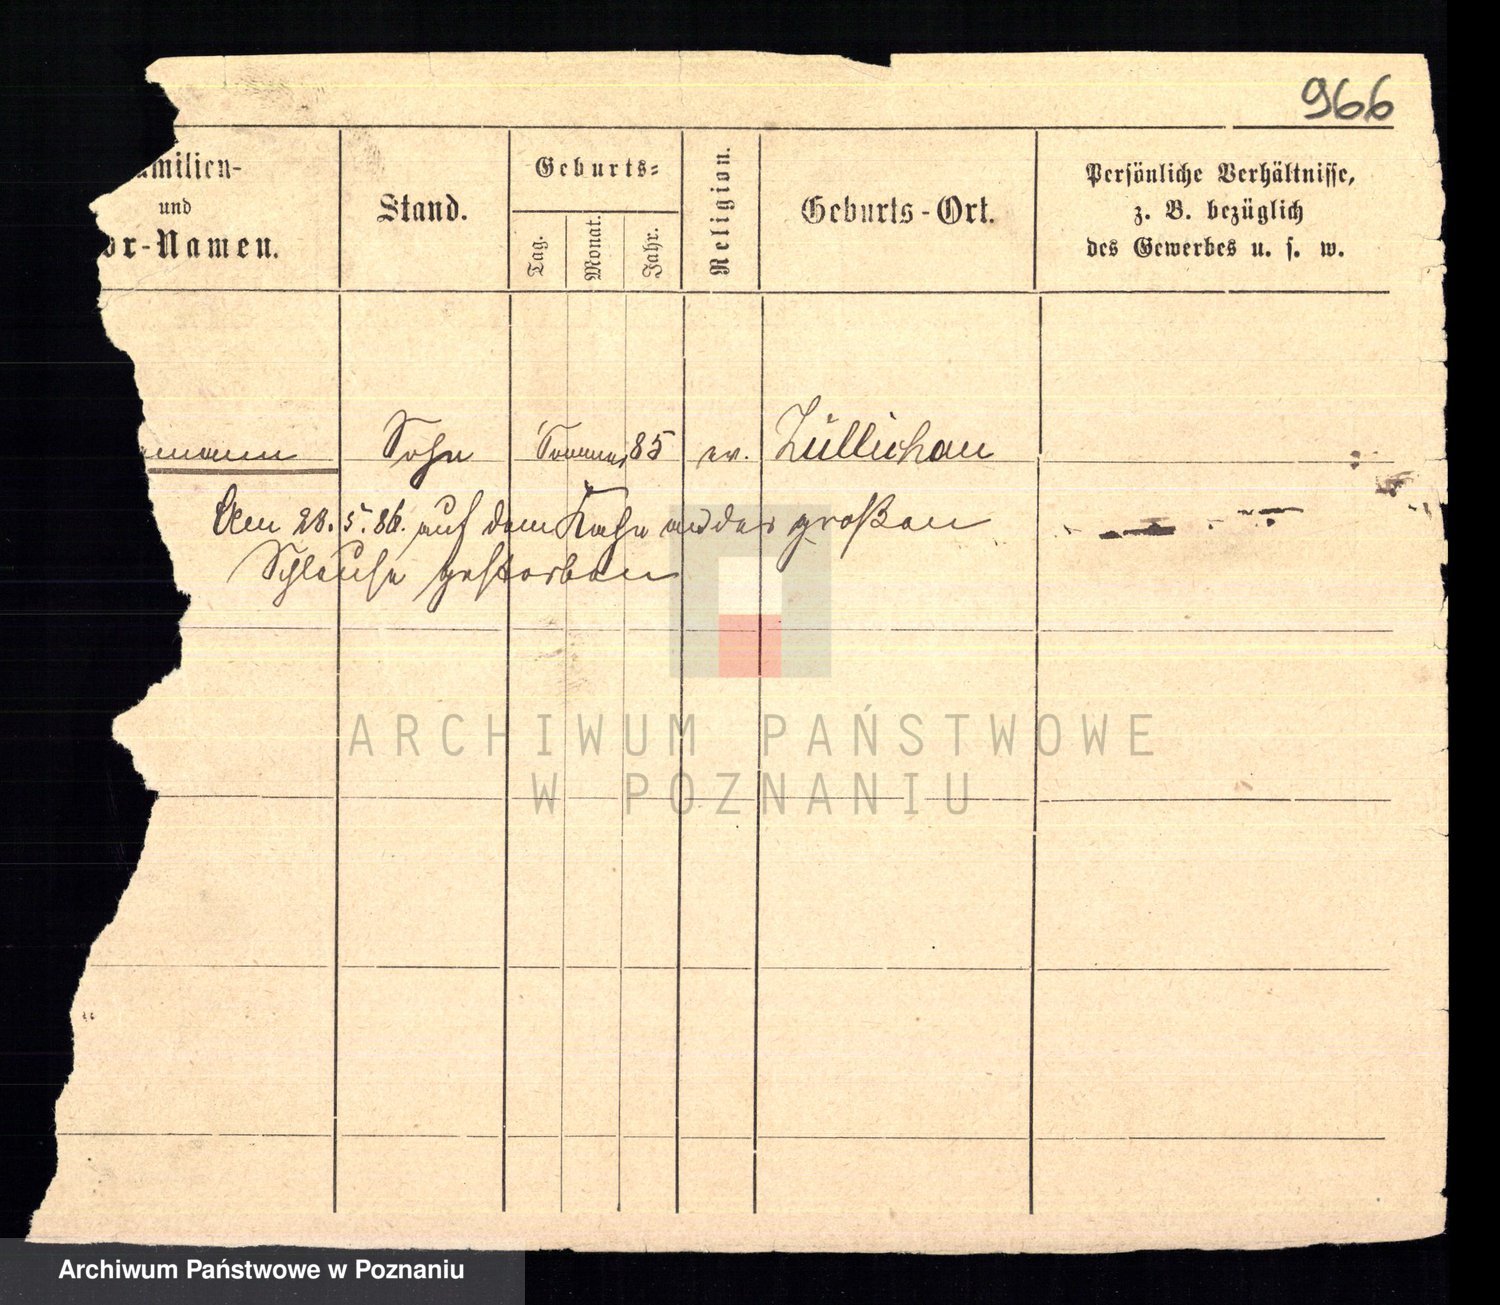 966
amilien-
und
or-Namen.
Stand.
Geburts-
Tag.
Monat.
Jahr.
Religion.
Geburts-Ort.
Persönliche Verhältnisse,
z. B. bezüglich
des Gewerbes u. s. w.
mann Sohn Sommer 85 ev. Züllichau
Am 28. 5. 86. auf dem Kahn an der großen
Schleuse gestorben
ARCHIWUM PAŃSTWOWE
W POZNANIU
Archiwum Państwowe w Poznaniu